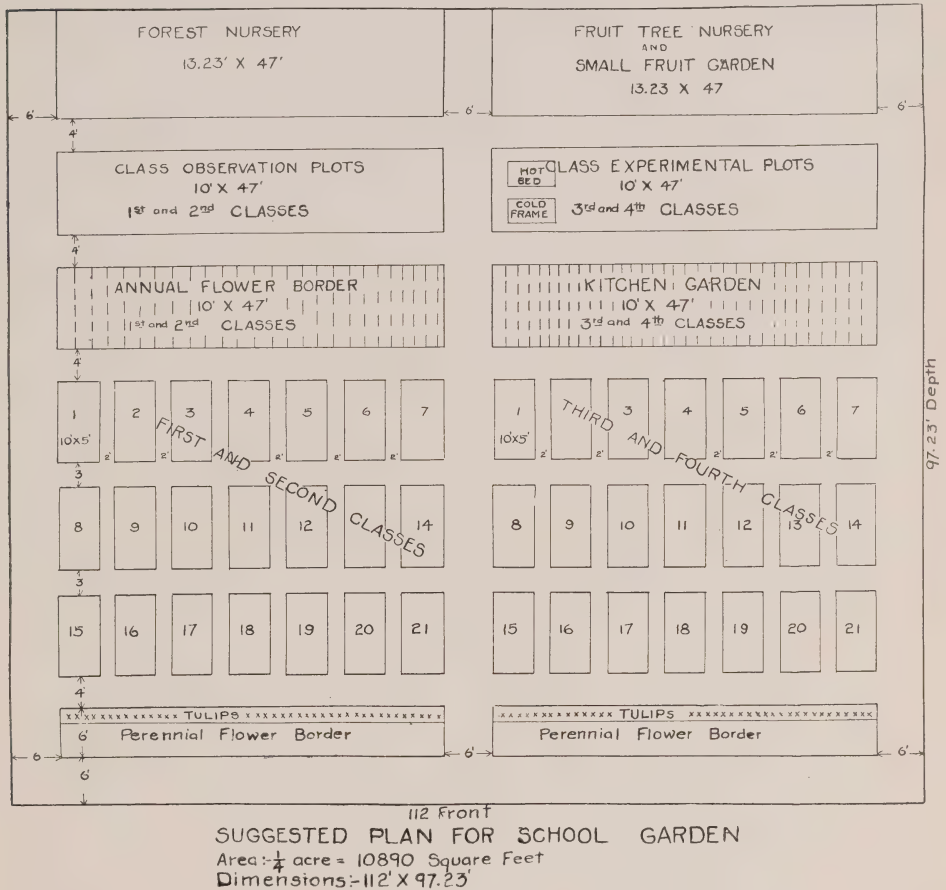 FOREST NURSERY
13.23' X 47'
FRUIT TREE NURSERY
AND
SMALL FRUIT GARDEN
13.23 X 47
6'
6'
6'
4'
CLASS OBSERVATION PLOTS
10' X 47'
1st and 2nd CLASSES
HOT BED
COLD FRAME
CLASS EXPERIMENTAL PLOTS
10' X 47'
3rd and 4th CLASSES
4'
ANNUAL FLOWER BORDER
10' X 47'
1st and 2nd CLASSES
KITCHEN GARDEN
10' X 47'
3rd and 4th CLASSES
4'
1 2 3 4 5 6 7
10'X5'
2' 2' 2' 2' 2' 2'
FIRST AND SECOND CLASSES
1 3 4 5 6 7
10'X5'
2' 2' 2' 2' 2' 2'
THIRD AND FOURTH CLASSES
97.23' Depth
3
8 9 10 11 12 14
8 9 10 11 12 13 14
3
15 16 17 18 19 20 21
15 16 17 18 19 20 21
4'
xxxxxxxxxxxxxx TULIPS xxxxxxxxxxxxxxxxxx
Perennial Flower Border
xxxxxxxxxxxxxx TULIPS xxxxxxxxxxxxxxxxxx
Perennial Flower Border
6'
6
6'
6'
6'
112 Front
SUGGESTED PLAN FOR SCHOOL GARDEN
Area:-¼ acre = 10890 Square Feet
Dimensions:-112' X 97.23'